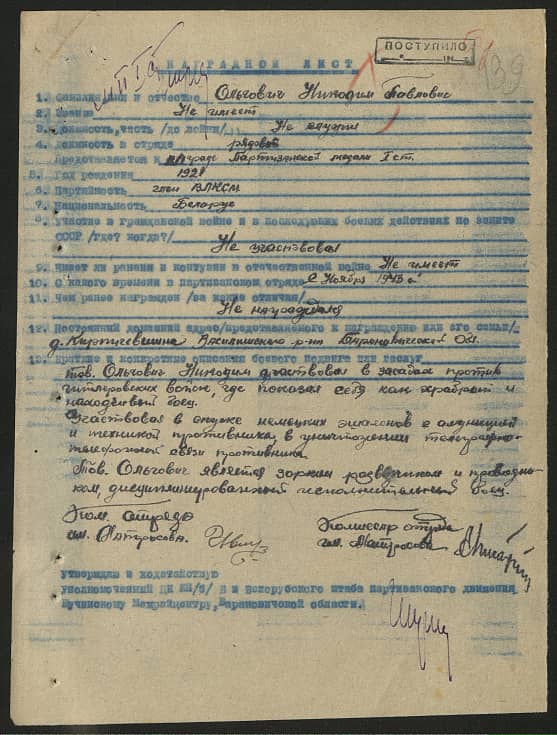 ПОСТУПИЛО
39
НАГРАДНОЙ ЛИСТ
1. Фамилия, имя и отчество Ольгович Никодим Павлович
2. Звание Не имеет
3. Должность, часть /до войны/ Не служил
4. Должность в отряде рядовой
Представляется к награде Партизанской медали I ст.
5. Год рождения 1921
6. Партийность член ВЛКСМ
7. Национальность Беларус
8. Участие в гражданской войне и в последующих боевых действиях по защите
СССР /где? когда?/
Не участвовал
9. Имеет ли ранения и контузии в отечественной войне Не имеет
10. С какого времени в партизанском отряде с Ноября 1943 г.
11. Чем ранее награжден /за какие отличия/
Не награждался
12. Постоянный домашний адрес/представляемого к награждению или его семьи/
д. Василишского р-на Барановичской Обл.
13. Краткие и конкретные описания боевого подвига или заслуг
тов. Ольгович Никодим участвовал в засадах против
гитлеровских войск, где показал себя как храбрый и
находчивый боец.
Участвовал в спуске немецких эшалонов с амуницией
и техникой противника, в уничтожении телеграфно-
телефонной связи противника
Тов. Ольгович является зорким разведчиком и проводни-
ком, дисциплинированный исполнительный боец.
Ком. отряда
им. Матросова.
Комиссар отряда
им. Матросова
Утверждаю и ходатайствую
уполномоченный ЦК КП/б/ Б и Белорусского штаба партизанского движения
Щучинскому Межрайцентру, Барановичской области.